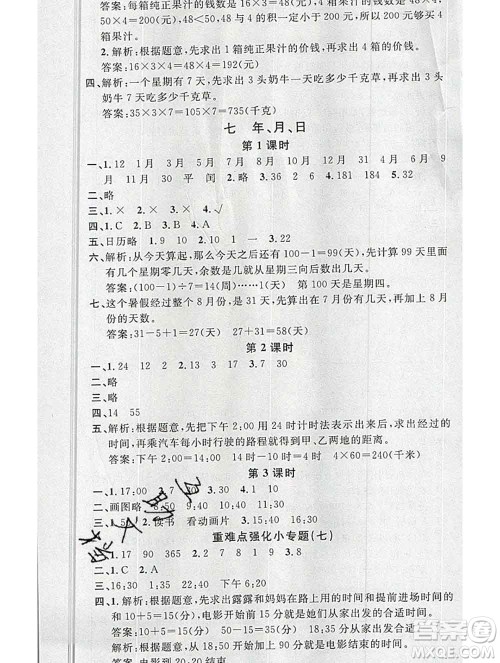 答案:每箱纯正果汁的钱数是16×3=48(元) 48×4
50×4=200(元) 48×4的积一定小于200,所以够买4
箱果汁。
2.解析:根据题意,先求出1箱果汁的价钱,再求出4箱的价钱。
答案:16×3×4=48×4=192(元)
四、解析:一个星期有7天,先求出3头奶牛一天吃多少千克草,再求出3头
奶牛7天吃多少千克草。
答案:35×3×7=105×7=735(千克)
七 年、月、日
第1课时
一、1.12 1月 2月 3月 4月 5月 6月 7月 8月 9月 10
月 11月 30 平 闰 2.4 3.16 4.2 181 5.32
二、略
三、1.× 2.× 3.× 4.√
四、1.B 2.C 3.A 4.B
五、日历略 1.9 2.10 1 3.22
六、解析:从今天算起,那么今天之后还有100-1=99(天),先计算99天里面
有几个星期零几天,余数是几就是星期三向后数几天。
答案:(100-1)÷7=14(周)……1(天) 第100天是星期四。
七、解析:这个暑假经过整个8月份,先算出7月份有几天,再加上8月
份的天数。
答案:31-5+1=27(天) 27+31=58(天)
第2课时
一、1.24 12 2 2.7 3 17 30
二、略
三、略
四、14 55
五、解析:根据题意,先把下午2:00用24时计时法表示出来,求出经过的
时间,再乘汽车每小时行驶的路程就得出甲、乙两地的距离。
答案:下午2:00=14:00 14时-10时=4时 4×60=240(千米)
第3课时
一、1.17:00 3.7 30 4.1 10
二、画图略 1.8:40 2.9:15
三、1.50 2.读书 看动画片 3.30
重难点强化小专题(七)
一、1.17 90 365 2.2
二、1.C 2.A
三、16:30
四、1.解析:根据题意,用露露和妈妈在路上用的时间和提前进场时间的
和去推算,电影开始前15分就是她们从家出发的合适时间。
答案:10+5=15(分) 电影开始前15分就是她们从家出发的合适时间。
答案:电影到20:20结束
作业大
答案圈
MXQE.COM